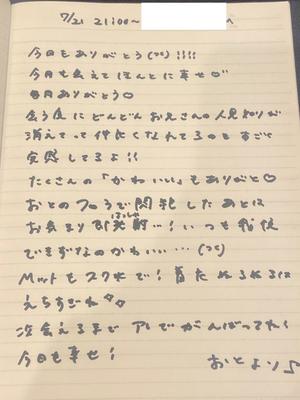 7/21 21:00〜 へ
今日もありがとう(つ;)!!!!
今月も会えてほんとに幸せ♡
毎月ありがとう♡
会う度にどんどんおえさんの人見知りが
消えてって仲良くなれてるのもすごく
実感してるよ!!
たくさんの「かわいい」もありがと♡
おとのフロうで開発したあとは
お気まり即発射…!いつも我慢
はっしゃ
できずなのかわいい…(つ;)
Mットもスク水で!着たぬるぬるは
えちすぎね
次会えるまでアレでがんばってたく
今日も幸せ!
おとより♪